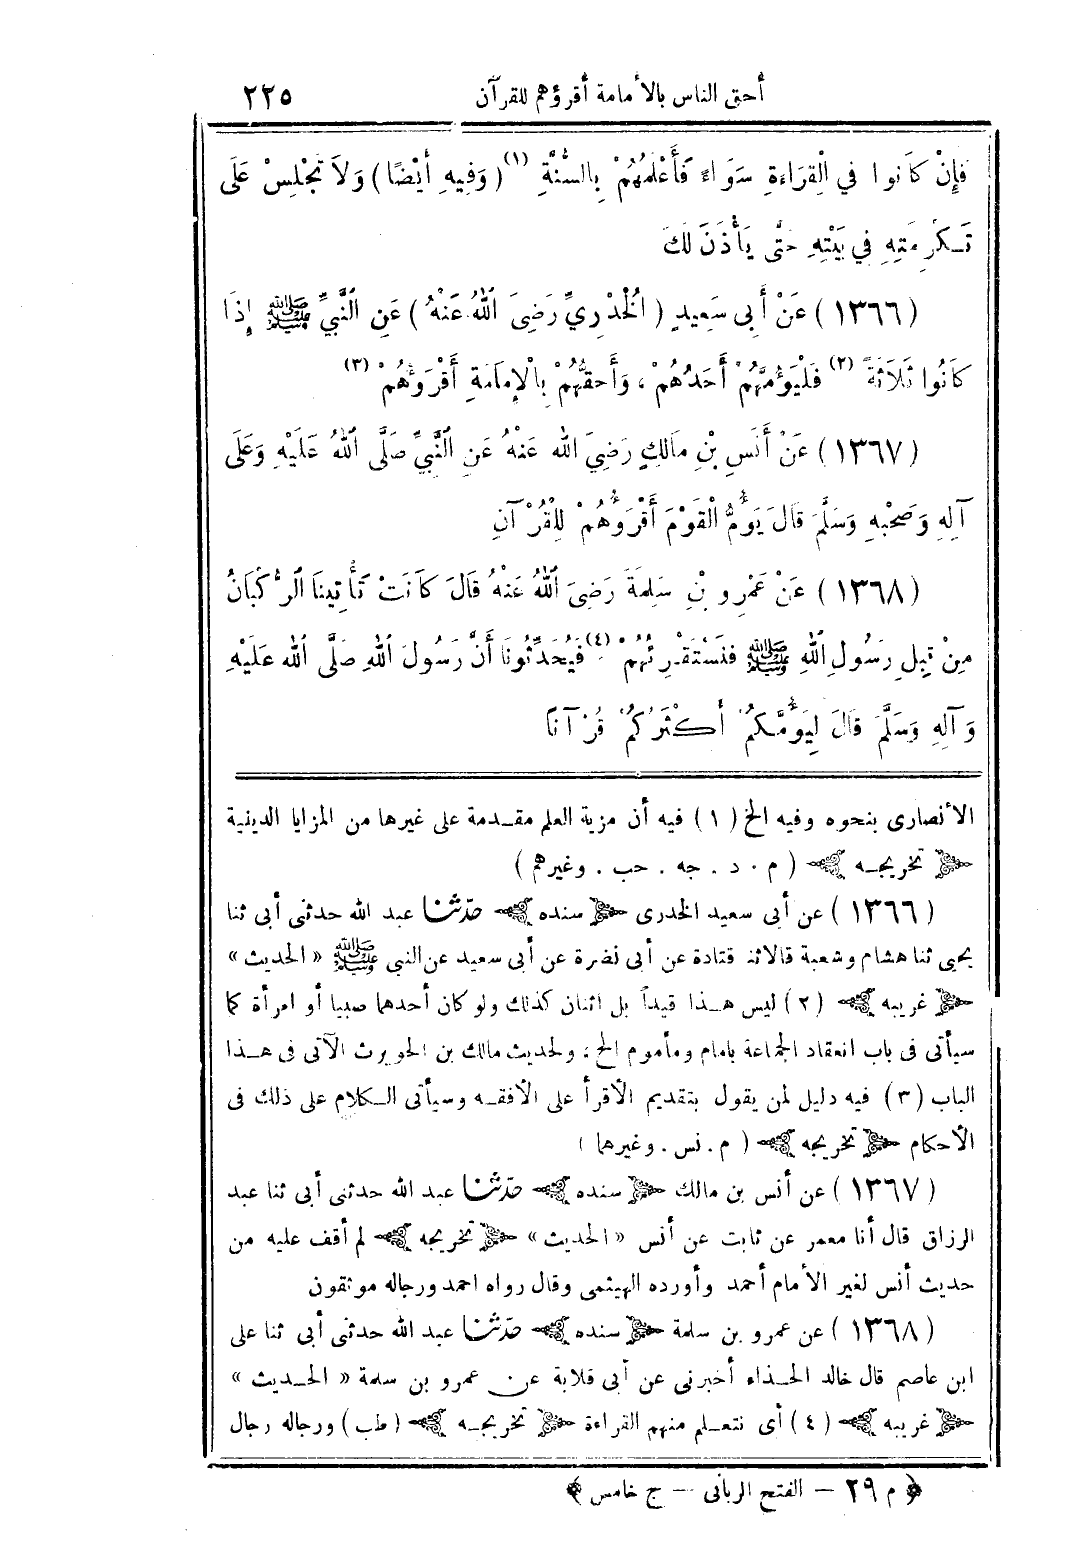 أحق الناس بالأمامة أقرؤهم للقرآن ٢٢٥
فَإِنْ كَانُوا فِي الْقِرَاءَةِ سَوَاءً فَأَعْلَمُهُمْ بِالسُّنَّةِ (١) ( وَفِيهِ أَيْضًا ) وَلَا تَجْلِسْ عَلَى
تَكْرِمَتِهِ فِي بَيْتِهِ حَتَّى يَأْذَنَ لَكَ
(١٣٦٦) عَنْ أَبِى سَعِيدٍ ( الْخُدْرِيِّ رَضِيَ اللهُ عَنْهُ ) عَنِ النَّبِيِّ ﷺ إِذَا
كَانُوا ثَلَاثَةً (٢) فَلْيَؤُمَّهُمْ أَحَدُهُمْ ، وَأَحَقُّهُمْ بِالْإِمَامَةِ أَقْرَؤُهُمْ (٣)
(١٣٦٧) عَنْ أَنَسِ بْنِ مَالِكٍ رَضِيَ الله عَنْهُ عَنِ النَّبِيِّ صَلَّى اللهُ عَلَيْهِ وَعَلَى
آلِهِ وَصَحْبِهِ وَسَلَّمَ قَالَ يَؤُمُّ الْقَوْمَ أَقْرَؤُهُمْ لِلْقُرْآنِ
(١٣٦٨) عَنْ عَمْرِو بْنِ سَلِمَةَ رَضِيَ اللهُ عَنْهُ قَالَ كَانَتْ تَأْتِينَا الرُّكْبَانُ
مِنْ قِبَلِ رَسُولِ اللهِ ﷺ فَنَسْتَقْرِئُهُمْ (٤) فَيُحَدِّثُونَا أَنَّ رَسُولَ اللهِ صَلَّى الله عَلَيْهِ
وَآلِهِ وَسَلَّمَ قَالَ لِيَؤُمَّكُمْ أَكْثَرُكُمْ قُرْآنًا
الأنصارى بنحوه وفيه الخ (١) فيه أن مزية العلم مقدمة على غيرها من المزايا الدينية
﴿ تخريجه ﴾ ( م . د . جه . حب . وغيرهم )
(١٣٦٦) عن أبى سعيد الخدرى ﴿ سنده ﴾ حدّثنا عبد الله حدثنى أبى ثنا
يحيى ثنا هشام وشعبة قالا ثنا قتادة عن أبى نضرة عن أبى سعيد عن النبى ﷺ « الحديث »
﴿ غريبه ﴾ (٢) ليس هذا قيداً بل اثنان كذلك ولو كان أحدهما صبيا أو امرأة كما
سيأتى فى باب انعقاد الجماعة بامام ومأموم الخ ، ولحديث مالك بن الحويرث الآتى فى هذا
الباب (٣) فيه دليل لمن يقول بتقديم الأقرأ على الأفقه وسيأتى الكلام على ذلك فى
الأحكام ﴿ تخريجه ﴾ ( م . نس . وغيرهما )
(١٣٦٧) عن أنس بن مالك ﴿ سنده ﴾ حدّثنا عبد الله حدثنى أبى ثنا عبد
الرزاق قال أنا معمر عن ثابت عن أنس « الحديث » ﴿ تخريجه ﴾ لم أقف عليه من
حديث أنس لغير الأمام أحمد وأورده الهيثمى وقال رواه احمد ورجاله موثقون
(١٣٦٨) عن عمرو بن سلمة ﴿ سنده ﴾ حدّثنا عبد الله حدثنى أبى ثنا على
ابن عاصم قال خالد الحذاء أخبرنى عن أبى قلابة عن عمرو بن سلمة « الحديث »
﴿ غريبه ﴾ (٤) أى نتعلم منهم القراءة ﴿ تخريجه ﴾ (طب) ورجاله رجال
﴿ م ٢٩ – الفتح الربانى – ج خامس ﴾